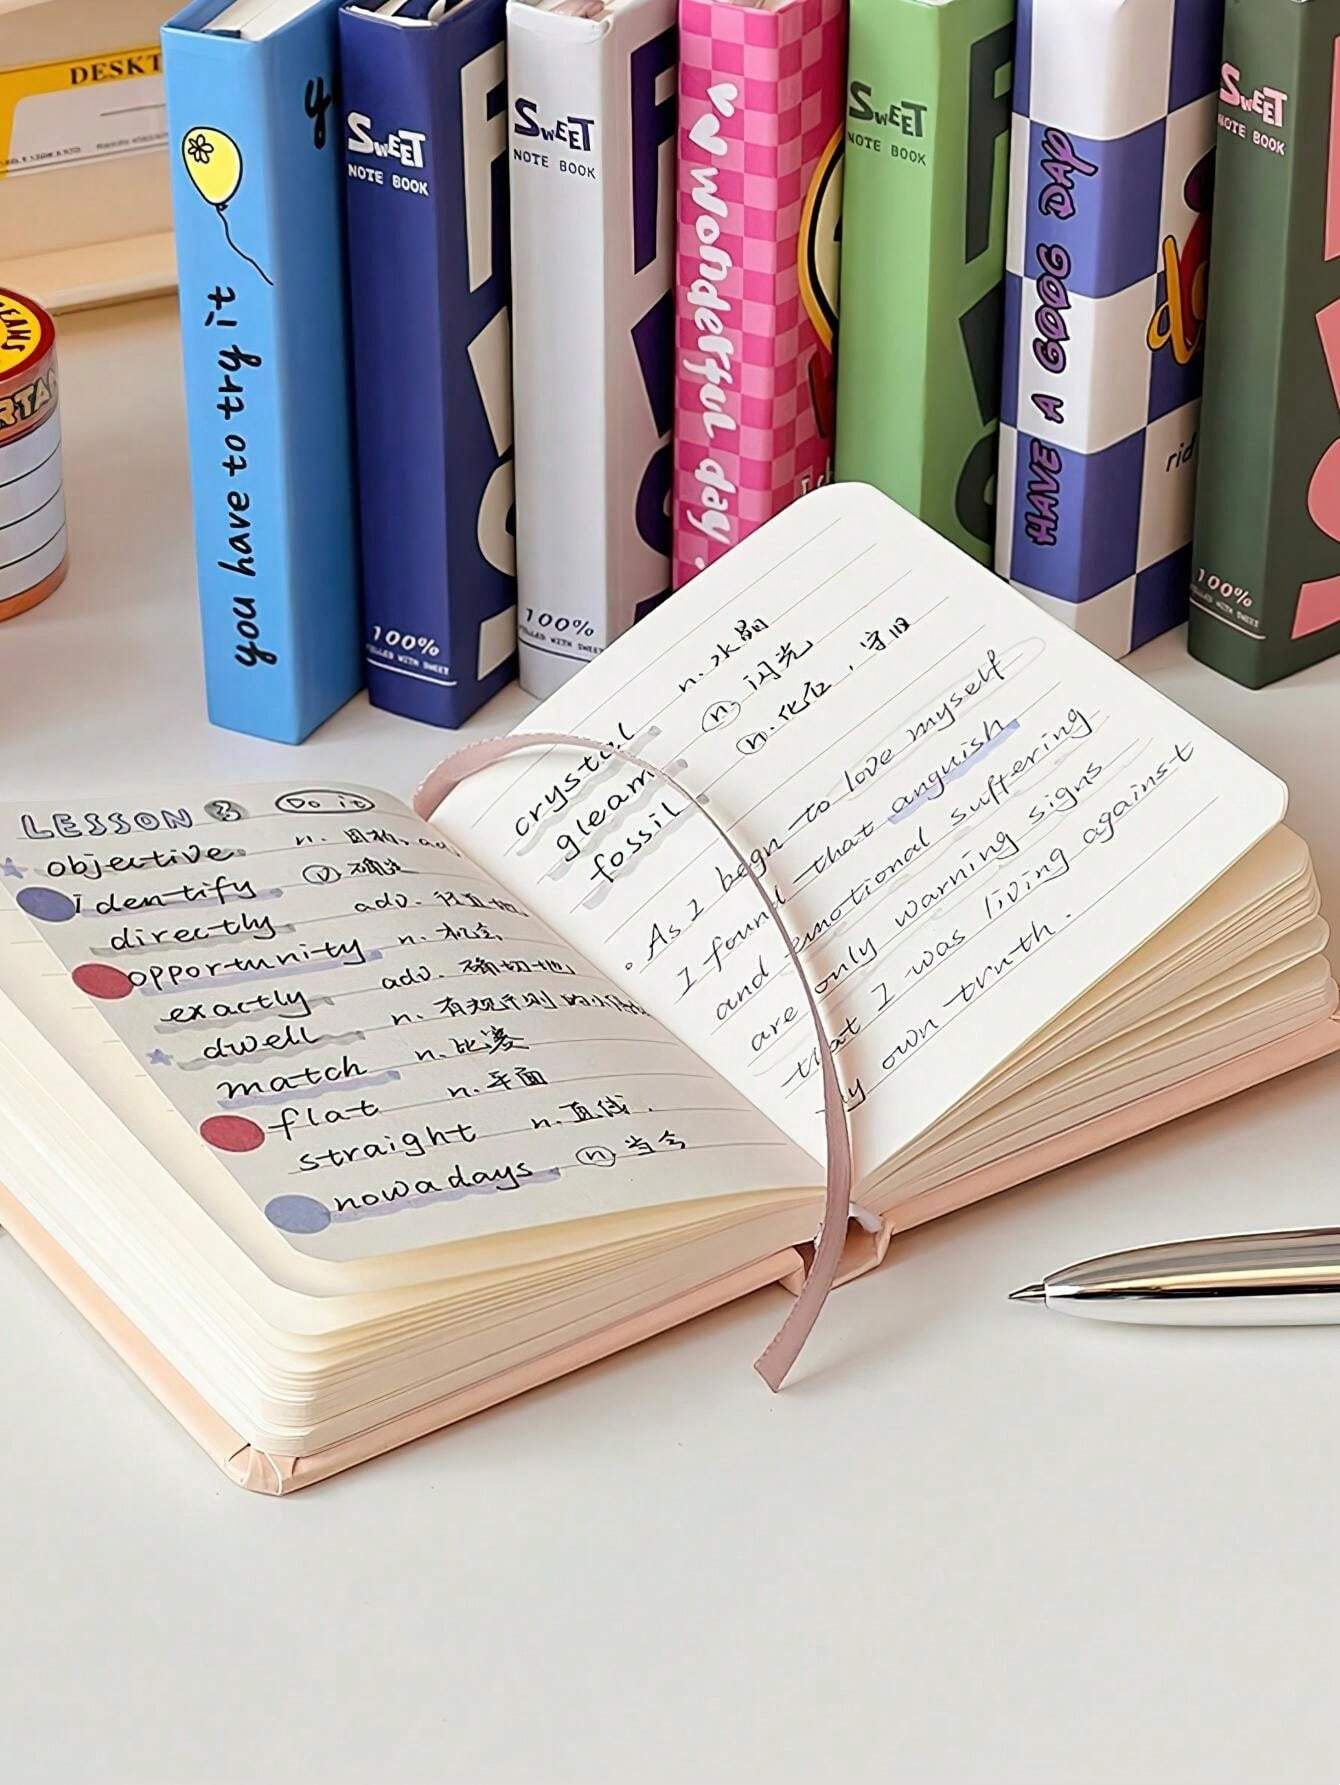 DESKT
you have to try it
SWEET
NOTE BOOK
100%
FILLED WITH SWEET
SWEET
NOTE BOOK
100%
FILLED WITH SWEET
wonderful day.
SWEET
NOTE BOOK
HAVE A GOOD DAY
rid
SWEET
NOTE BOOK
100%
FILLED WITH SWEET
LESSON 3 Do it
objective n. 目标, adj
identify ⓥ 确定
directly adv. 径直地
opportunity n. 机会
exactly adv. 确切地
dwell n. 有规则的
match n. 比赛
flat n. 平面
straight n. 直线.
nowadays ⓝ 当今
crystal n. 水晶
gleam ⓝ 闪光
fossil ⓝ. 化石, 守旧
. As I begn to love myself
I found that anguish
and emotional suffering
are only warning signs
that I was living against
my own truth.